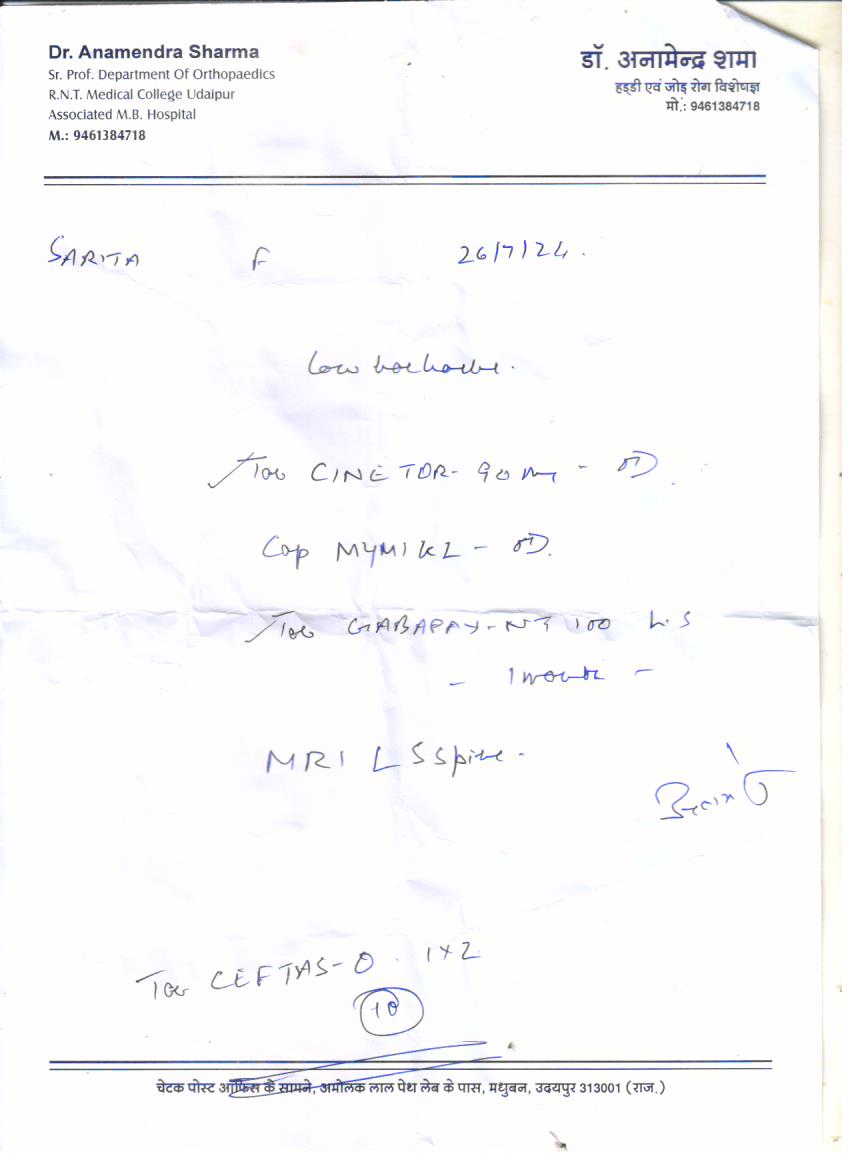 Dr. Anamendra Sharma
Sr. Prof. Department Of Orthopaedics
R.N.T. Medical College Udaipur
Associated M.B. Hospital
M.: 9461384718
डॉ. अनामेन्द्र शर्मा
हड्डी एवं जोड़ रोग विशेषज्ञ
मो.: 9461384718
SARITA F 26/7/24.
Low backache.
Tab CINETOR-90 mg - OD.
Cap MYMIKL - OD.
Tab GABAPAX-NT 100 H.S
- 1 week -
MRI LS Spine -
Tab CEFTAS-O. 1x2
10
चेटक पोस्ट ऑफिस के सामने, अमोलक लाल पेथ लेब के पास, मधुबन, उदयपुर 313001 (राज.)